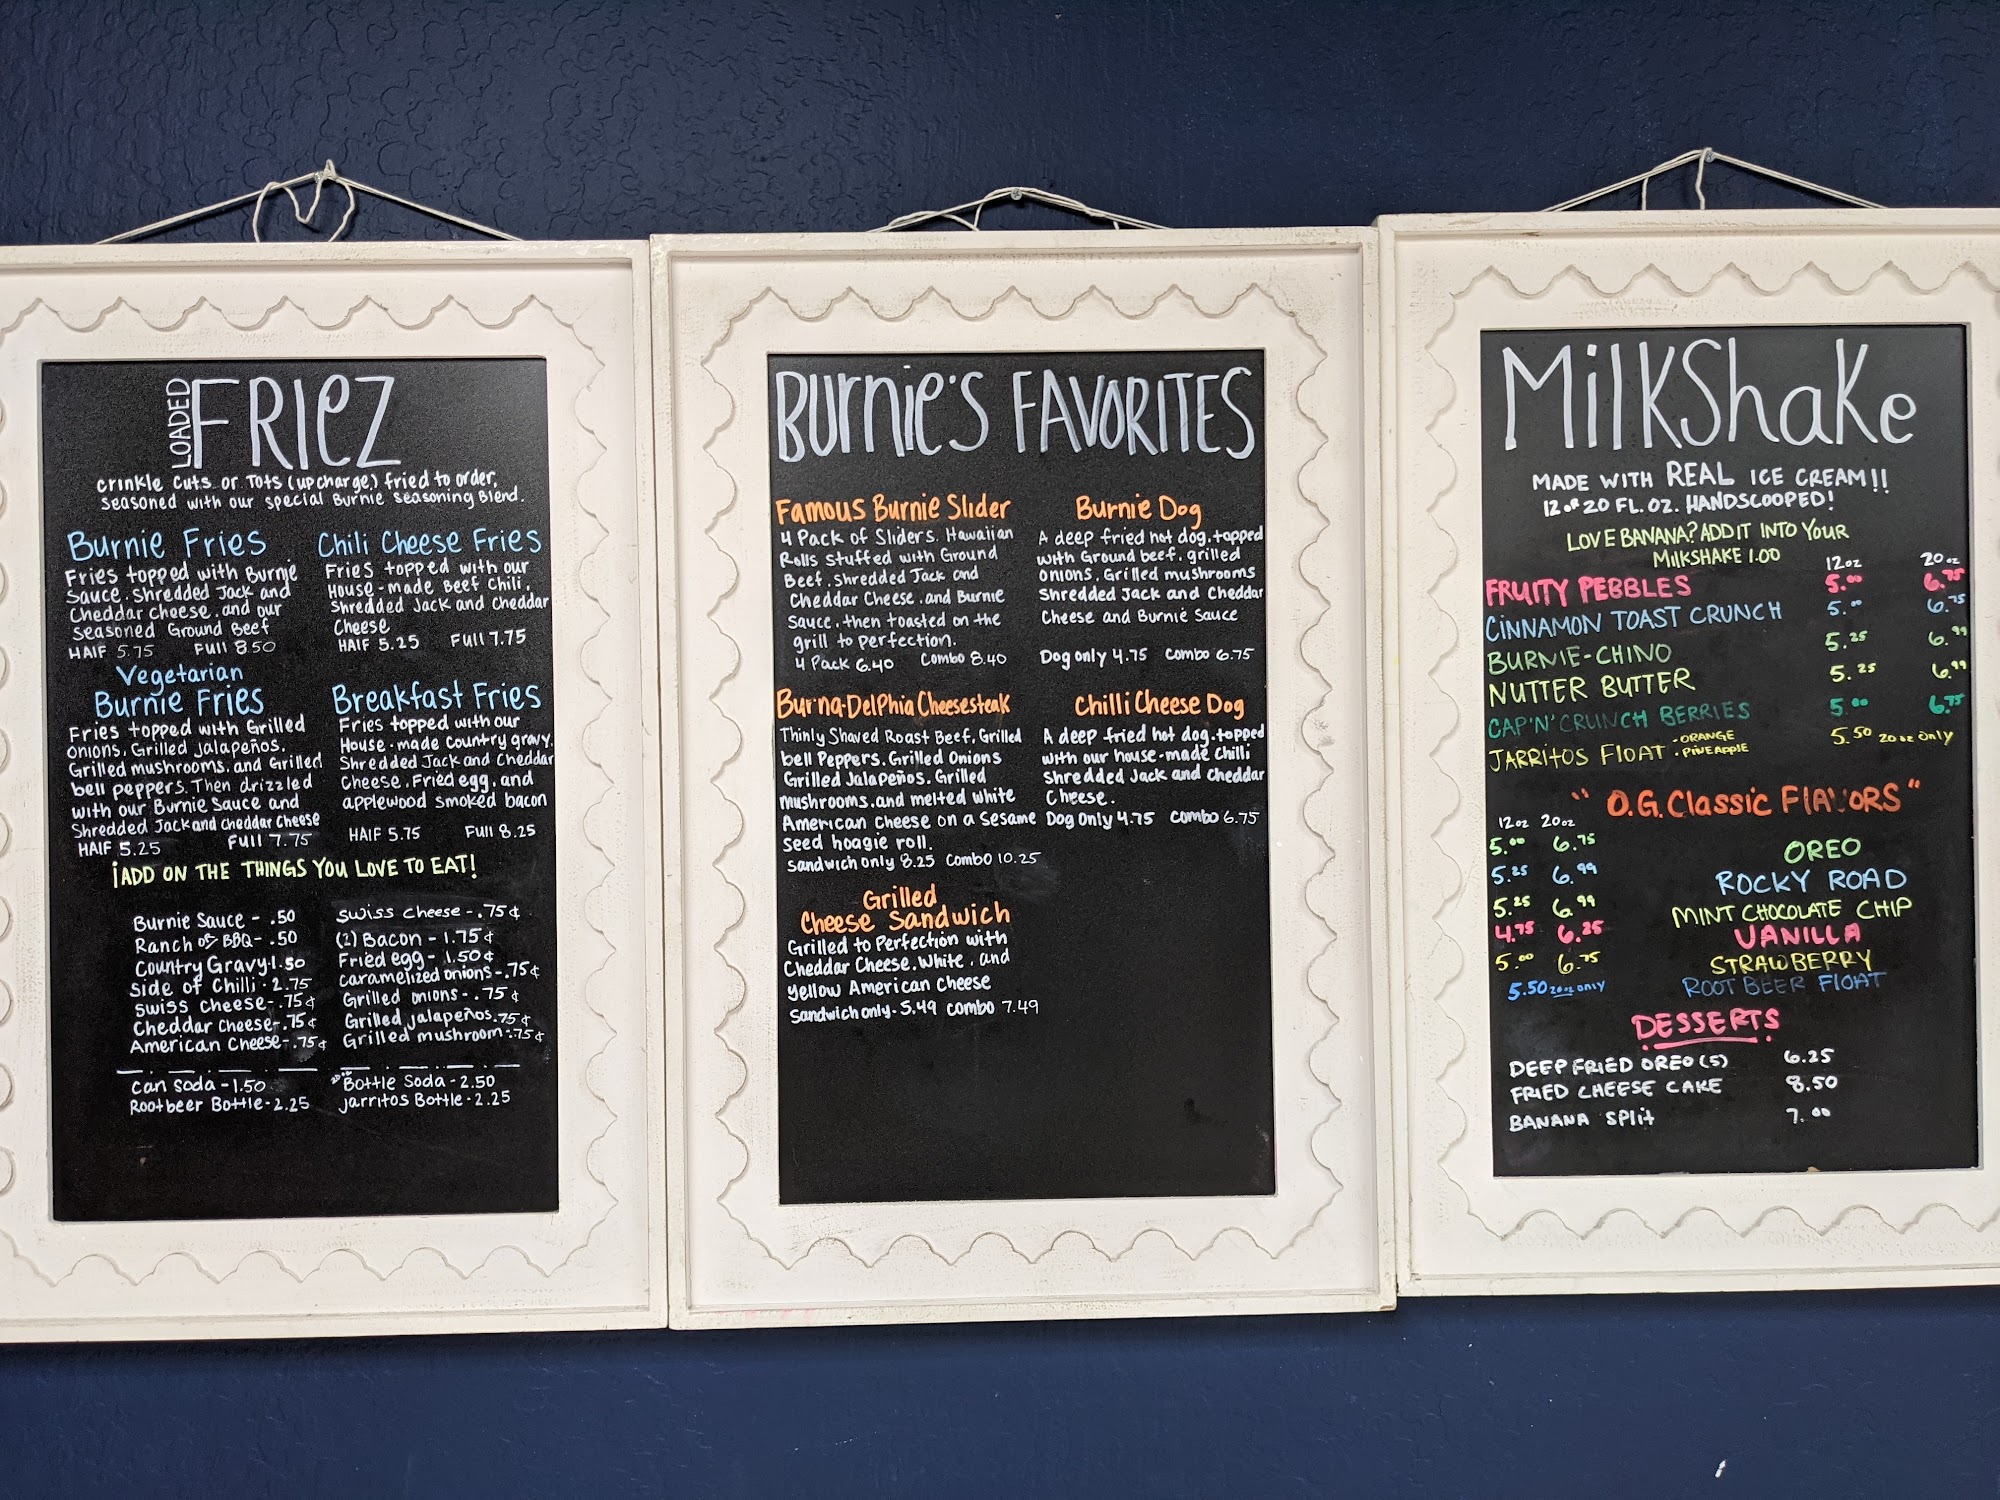 LOADED
FRIEZ
crinkle cuts or Tots (upcharge) fried to order,
seasoned with our special Burnie seasoning Blend.
Burnie Fries
Fries topped with Burnie
Sauce. Shredded Jack and
Cheddar Cheese. and our
seasoned Ground Beef
HAlF 5.75 FUll 8.50
Chili Cheese Fries
Fries topped with our
House-made Beef Chili,
Shredded Jack and Cheddar
Cheese
HAlF 5.25 FUll 7.75
Vegetarian
Burnie Fries
Fries topped with Grilled
onions. Grilled Jalapeños.
Grilled mushrooms. and Grilled
bell peppers. Then drizzled
with our Burnie Sauce and
Shredded Jack and cheddar Cheese
HAlF 5.25 FUll 7.75
Breakfast Fries
Fries topped with our
House-made country gravy.
Shredded Jack and Cheddar
Cheese. Fried egg, and
applewood smoked bacon
HAlF 5.75 FUll 8.25
¡ADD ON THE THINGS YOU LOVE TO EAT!
Burnie Sauce - .50
Ranch or BBQ - .50
Country Gravy-1.50
Side of Chilli - 2.75
Swiss Cheese - .75¢
Cheddar Cheese - .75¢
American Cheese - .75¢
Swiss cheese - .75¢
(2) Bacon - 1.75¢
Fried egg - 1.50¢
caramelized onions - .75¢
Grilled onions - .75¢
Grilled jalapeños .75¢
Grilled mushroom - .75¢
can soda - 1.50
Rootbeer Bottle - 2.25
Bottle Soda - 2.50
jarritos Bottle - 2.25
BURNIE'S FAVORITES
Famous Burnie Slider
4 Pack of Sliders. Hawaiian
Rolls stuffed with Ground
Beef. Shredded Jack and
Cheddar Cheese. and Burnie
Sauce. then toasted on the
grill to perfection.
4 Pack 6.40 Combo 8.40
Burnie Dog
A deep fried hot dog. topped
with Ground beef. grilled
onions. Grilled mushrooms
Shredded Jack and Cheddar
Cheese and Burnie Sauce
Dog only 4.75 Combo 6.75
Burna-DelPhia Cheesesteak
Thinly Shaved Roast Beef. Grilled
bell Peppers. Grilled Onions
Grilled Jalapeños. Grilled
mushrooms. and melted white
American cheese on a Sesame
seed hoagie roll.
Sandwich only 8.25 Combo 10.25
Chilli Cheese Dog
A deep fried hot dog. topped
with our house-made Chilli
Shredded Jack and Cheddar
Cheese.
Dog Only 4.75 Combo 6.75
Grilled
Cheese Sandwich
Grilled to Perfection with
Cheddar Cheese. White. and
yellow American Cheese
Sandwich only - 5.49 combo 7.49
MilkShake
MADE WITH REAL ICE CREAM!!
12 or 20 FL. OZ. HANDSCOOPED!
LOVE BANANA? ADD IT INTO YOUR
MILKSHAKE 1.00
12oz 20oz
FRUITY PEBBLES 5.00 6.75
CINNAMON TOAST CRUNCH 5.00 6.75
BURNIE-CHINO 5.25 6.99
NUTTER BUTTER 5.25 6.99
CAP'N'CRUNCH BERRIES 5.00 6.75
JARRITOS FLOAT • ORANGE • PINEAPPLE 5.50 20oz only
"O.G. Classic FLAVORS"
12oz 20oz
5.00 6.75 OREO
5.25 6.99 ROCKY ROAD
5.25 6.99 MINT CHOCOLATE CHIP
4.75 6.25 VANILLA
5.00 6.75 STRAWBERRY
5.50 20oz only ROOT BEER FLOAT
DESSERTS
DEEP FRIED OREO (5) 6.25
FRIED CHEESE CAKE 8.50
BANANA SPLIT 7.00